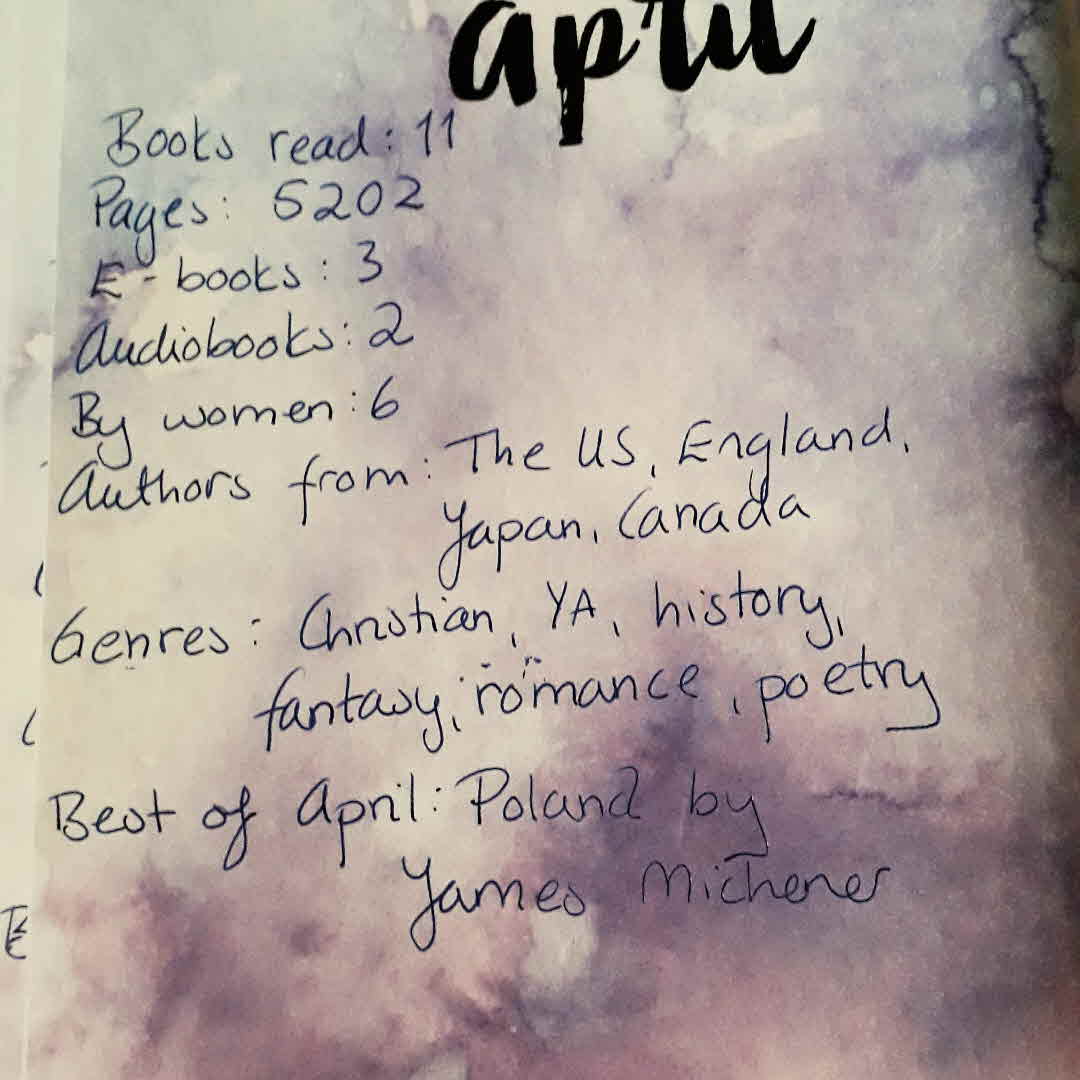 april
Books read: 11
Pages: 5202
E-books: 3
Audiobooks: 2
By women: 6
Authors from: The US, England,
Japan, Canada
Genres: Christian, YA, history,
fantasy, romance, poetry
Best of April: Poland by
James Michener